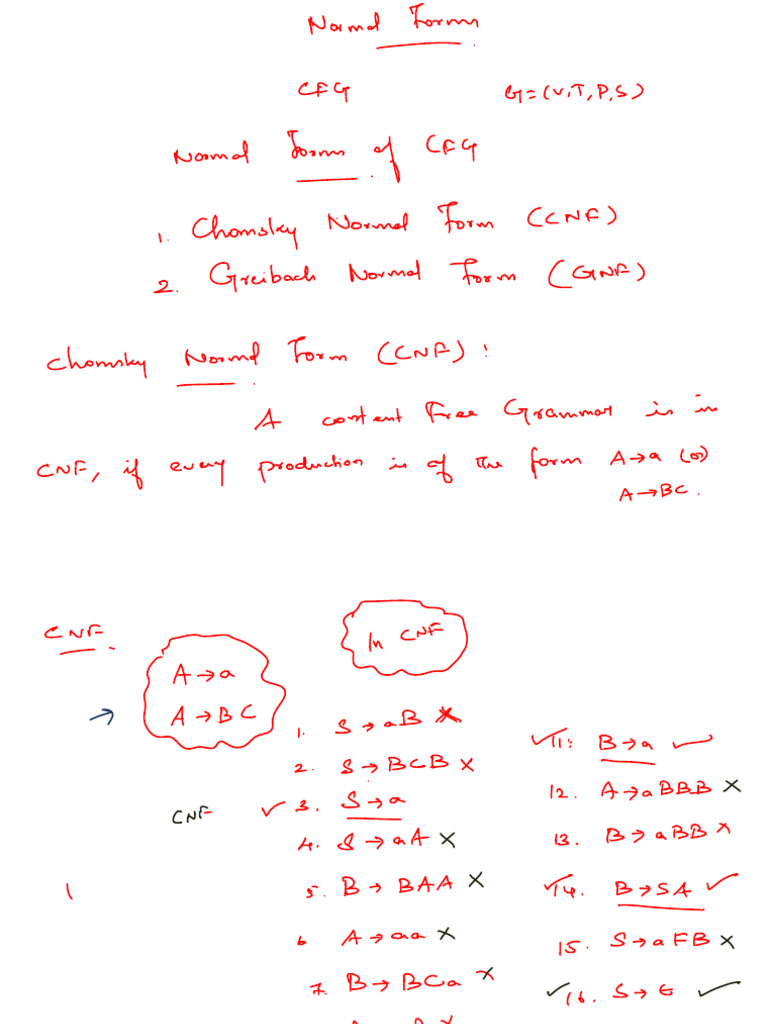 Normal Forms
CFG G=(V,T,P,S)
Normal Forms of CFG
1. Chomsky Normal Form (CNF)
2. Greibach Normal Form (GNF)
Chomsky Normal Form (CNF):
A context Free Grammar is in
CNF, if every production is of the form A→a (or)
A→BC.
CNF.
In CNF
A→a
→ A→BC
1. S→aB ✗
2. S→BCB ✗
CNF ✓ 3. S→a
4. S→aA ✗
5. B→BAA ✗
6 A→aa ✗
7. B→BCa ✗
✓11: B→a ✓
12. A→aBBB ✗
13. B→aBB ✗
✓14. B→SA ✓
15. S→aFB ✗
✓16. S→ϵ ✓